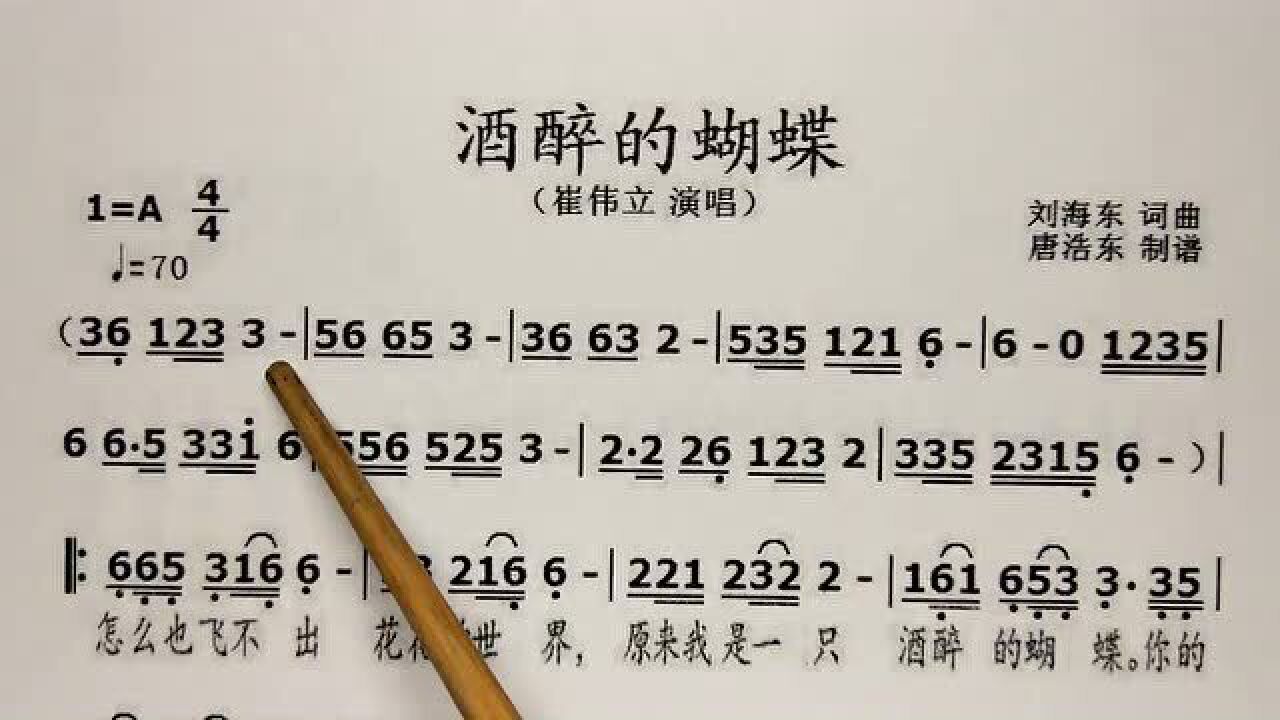 酒醉的蝴蝶
（崔伟立 演唱）
1=A 4/4
刘海东 词曲
♩=70
唐浩东 制谱
（36 123 3 -|56 65 3 -|36 63 2 -|535 121 6 -|6 - 0 1235|
6 6·5 331 6 556 525 3 -|2·2 26 123 2|335 2315 6 - ）|
‖: 665 316 6 -| 216 6 -|221 232 2 -|161 653 3· 35|
怎么也飞不 出 花 世 界， 原来我是一 只 酒醉 的蝴 蝶。你的